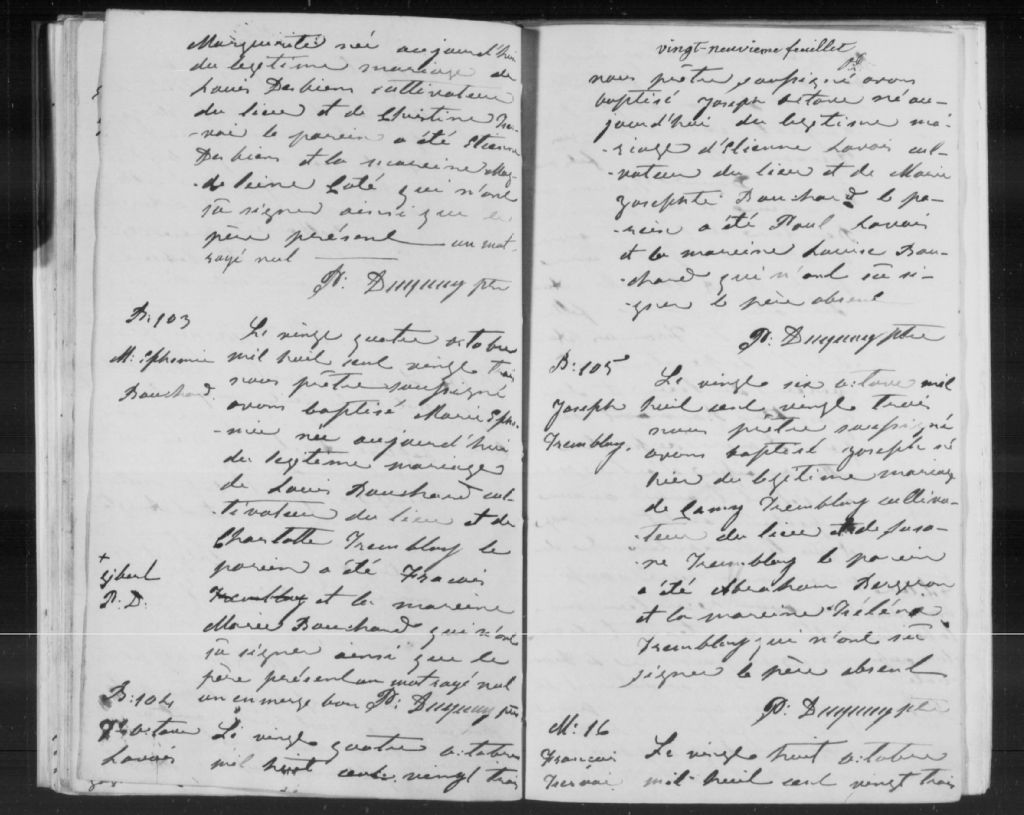 Marguerite née aujourd'hui
du legitime mariage de
Louis Desbiens cultivateur
du lieu et de Christine Ger-
vai le parein a été Etienne
Desbiens et la mareine Mag-
deleine Coté qui n'ont
sû signer ainsi que le
père présent un mot
rayé nul
P: Duguay ptre
B: 103
M: Ephemie
Bouchard
Le vingt quatre octobre
mil huit cent vingt trois
nous prêtre soussigné
avons baptisé Marie Ephe-
mie née aujourd'hui
du legitime mariage
de Louis Bouchard cul
tivateur du lieu et de
Charlotte Tremblay le
parein a été Fracois
+
gibert
P. D.
Tremblay et la mareine
Marie Bouchard qui n'ont
sû signer ainsi que le
père présent un mot rayé nul
un en marge bon P: Duguay ptre
B: 104
J. Octave
Lavoie
Le vingt quatre octobre
mil huit cent vingt trois
vingt-neuvieme feuillet
PD
nous prêtre soussigné avons
baptisé Joseph Octave né au-
jourd'hui du legtisme ma-
-riage d'Etienne Lavoie cul-
-vateur du lieu et de Marie
Josephte Bouchard le pa-
-rein a été Paul Lavoie
et la mareine Louise Bou-
-chard qui n'ont sû si-
-gner le père absent
P: Duguay ptre
B: 105
Joseph
Tremblay.
Le vingt six octovre mil
huit cent vingt trois
nous prêtre soussigné
avons baptisé Joseph né
hier du legitime mariage
de Tremblay cultiva-
-teur du lieu et de Susa-
-ne Tremblay le parein
a été Abraham Bergeron
et la mareine Hélène
Tremblay qui n'ont sû
signer le père absent
P: Duguay ptre
M: 16
Francois
Gervai
Le vingt huit octobre
mil huit cent vingt trois